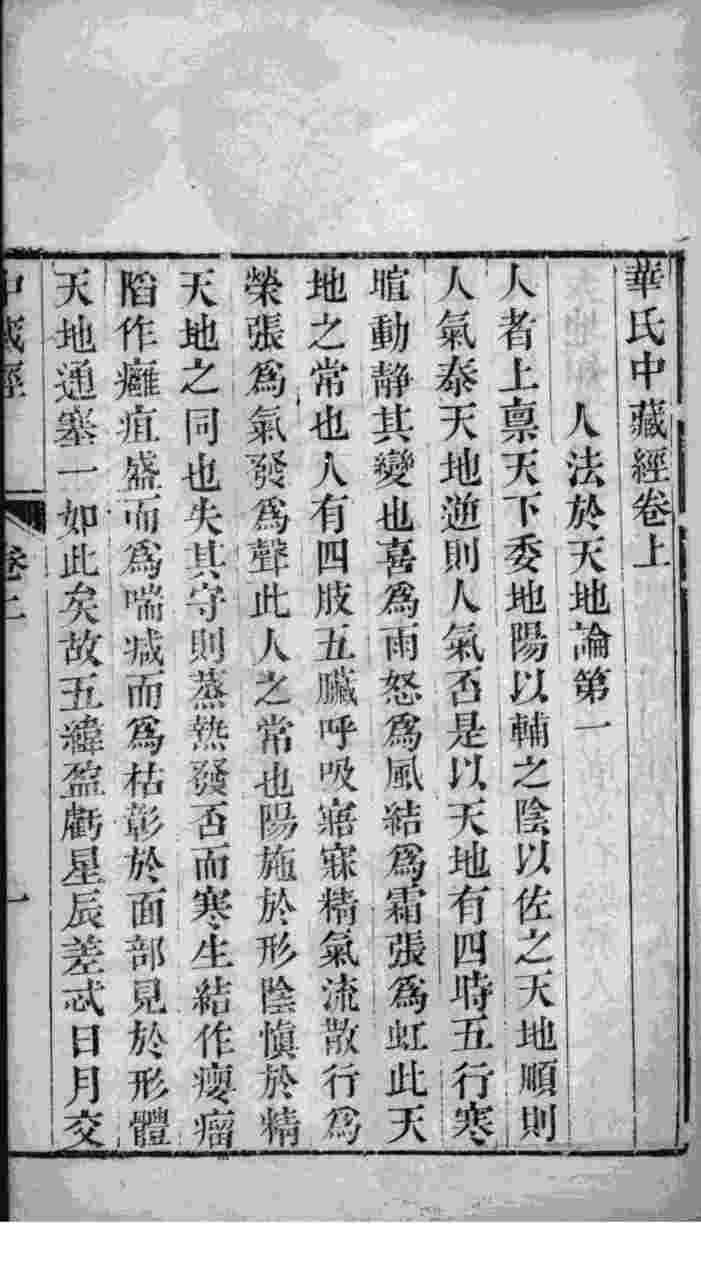 華氏中藏經卷上
人法於天地論第一
人者上禀天下委地陽以輔之陰以佐之天地順則
人氣泰天地逆則人氣否是以天地有四時五行寒
暄動靜其變也喜爲雨怒爲風結爲霜張爲虹此天
地之常也人有四肢五臟呼吸寤寐精氣流散行爲
榮張爲氣發爲聲此人之常也陽施於形陰愼於精
天地之同也失其守則蒸熱發否而寒生結作瘿瘤
陷作癰疽盛而爲喘減而爲枯彰於面部見於形體
天地通塞一如此矣故五緯盈虧星辰差忒日月交
中藏經
卷上
一